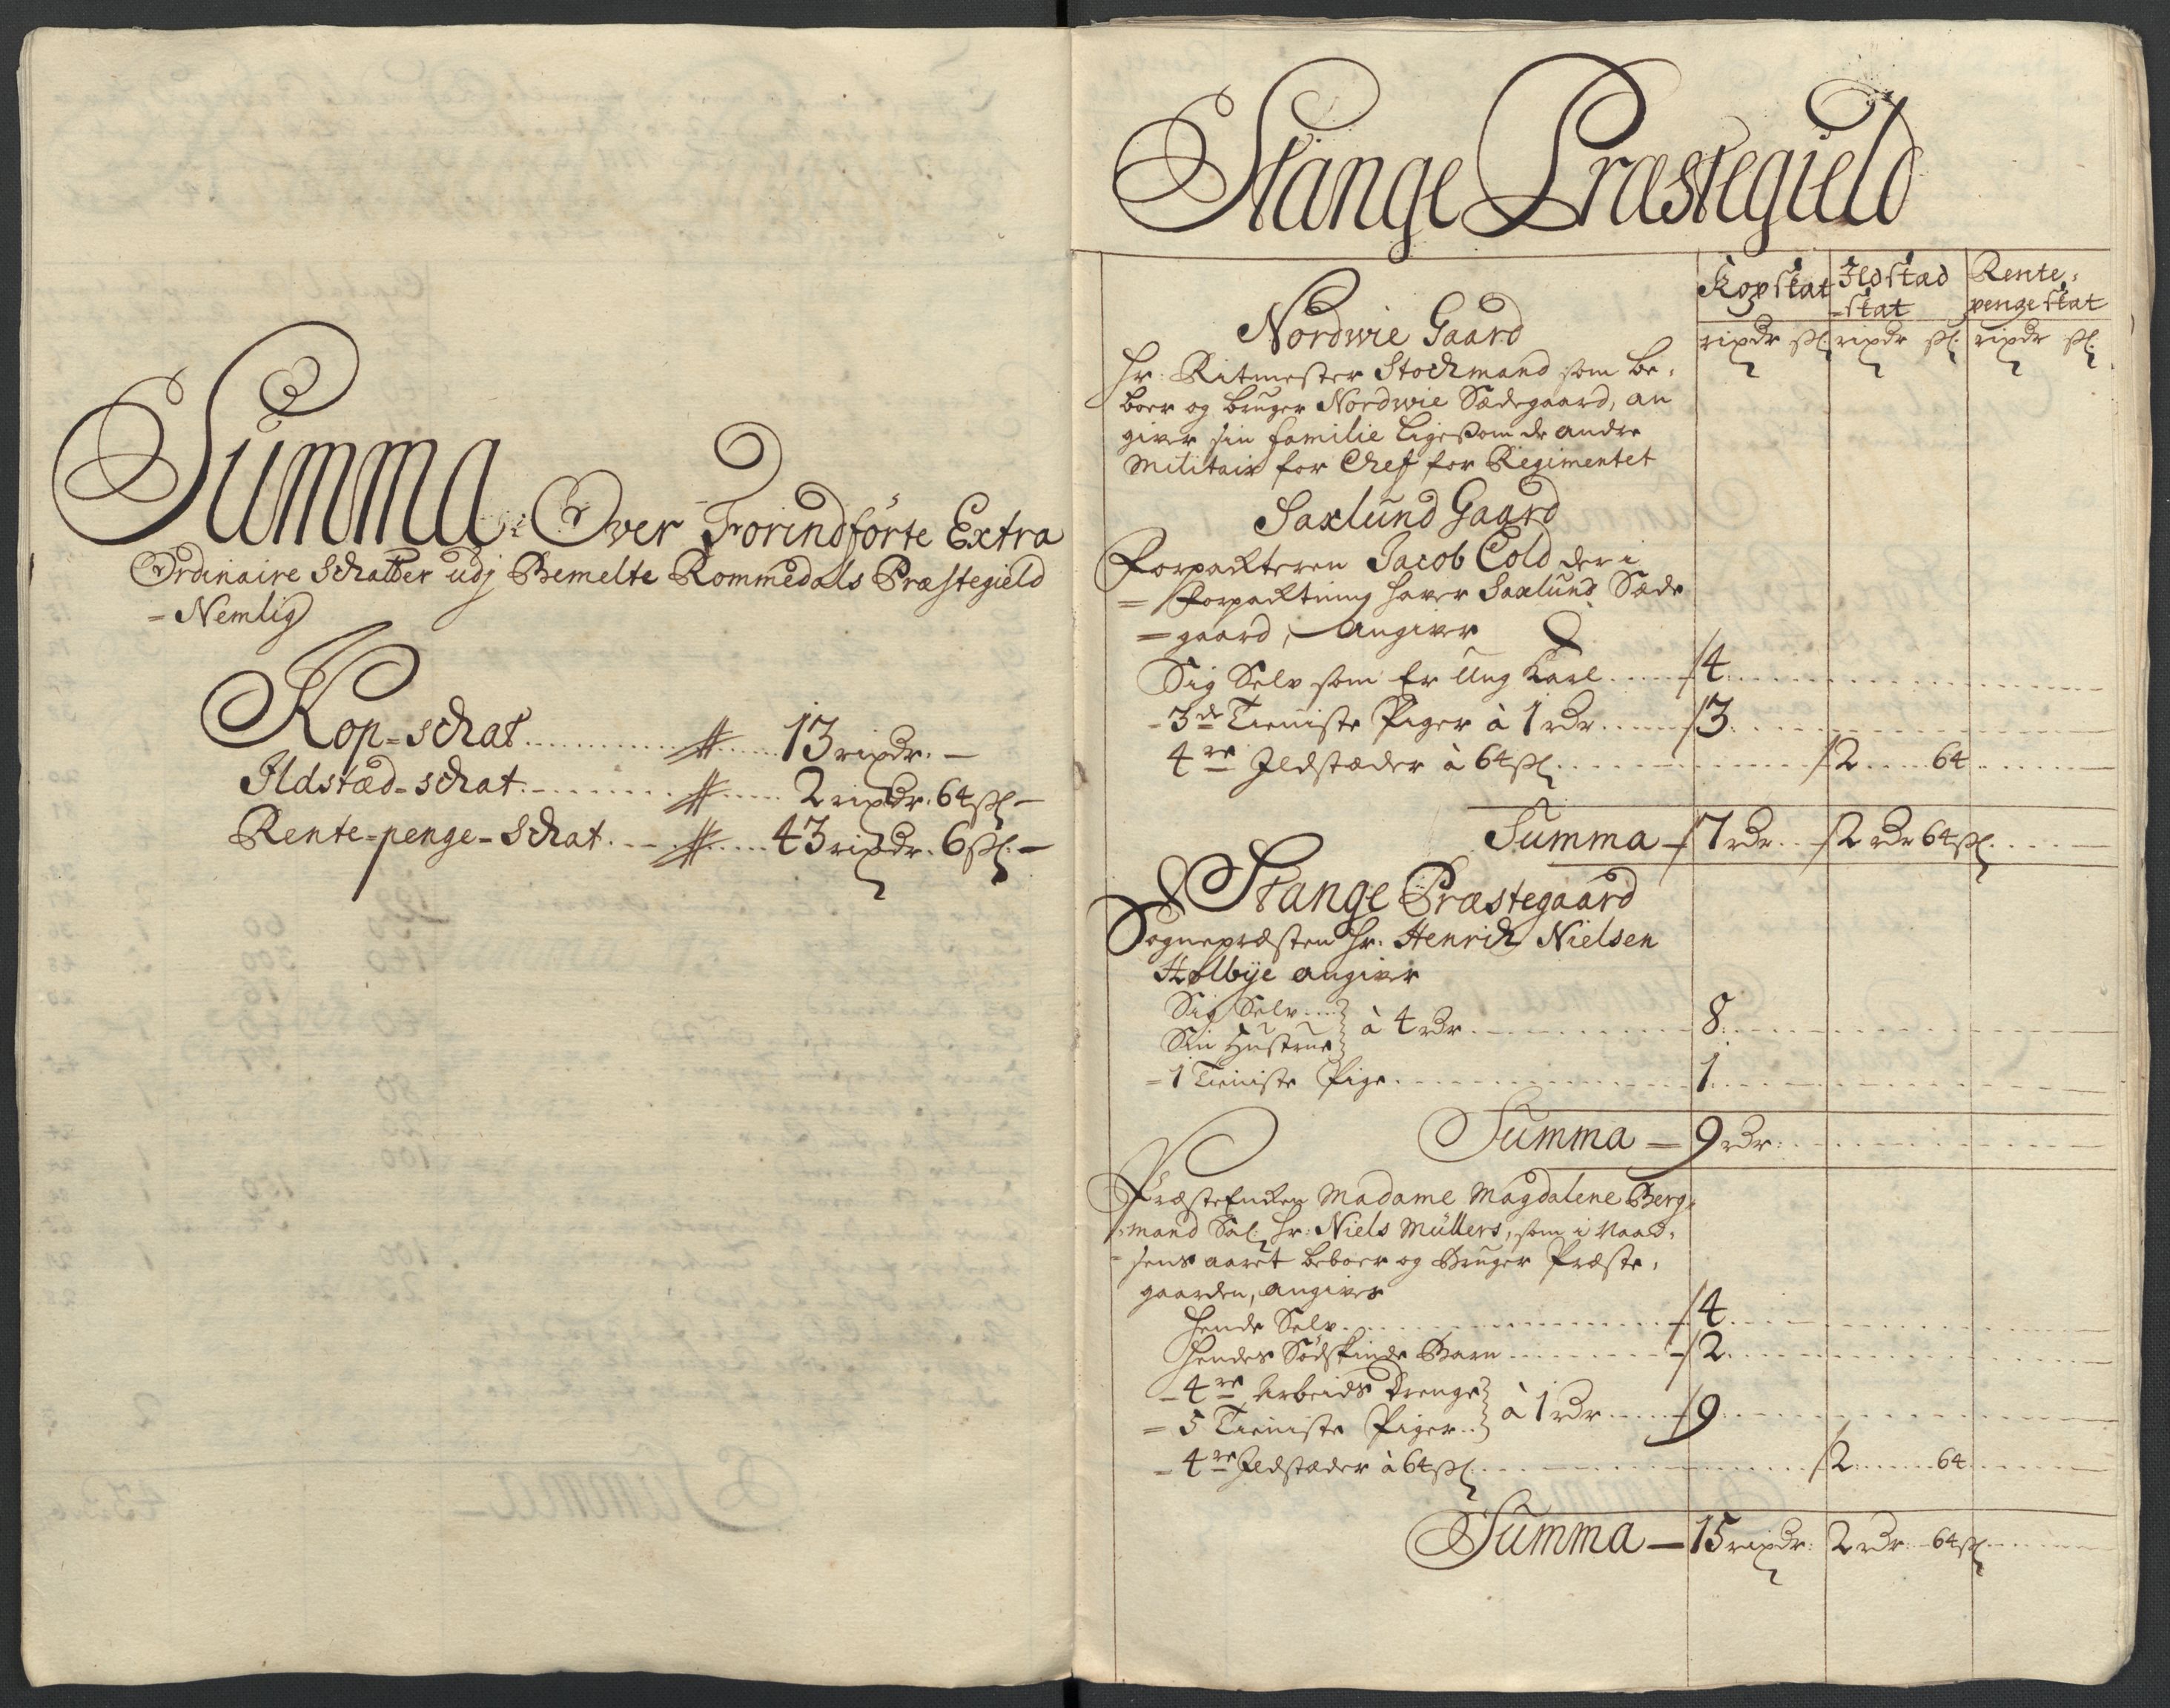 Summa: Over Forindførte Extra
Ordinaire Schatter udj Bemelte Rommedals Præstegield
= Nemlig
Kop=schat 13 rixdr. —
Ildstæd=schat 2 rixdr. 64 ßl. —
Rente=penge=Schat 43 rixdr. 6 ßl. —
Stange Præstegield
Kopskat Ildstæd Rente,
=skat penge skat
rixdr ßl. rixdr ßl. rixdr ßl.
Nordwie Gaard
Hr. Ritmester Stockmand som be,
boer og bruger Nordwie Sædegaard, an
giver sin familie ligesom de andre
Militair for Chef for Regimentet
Saxlund Gaard
Forpackteren Jacob Cold der i
= Forpacktning haver Saxlund Sæde
= gaard, Angiver
Sig Selv som Er Ung Karl 4
- 3de Tieniste Piger à 1 rdr 3
4re Ildstæder à 64 ßl 2 64
Summa 7 rdr 2 rdr 64 ßl.
Stange Præstegaard
Sognepræsten Hr. Henrich Nielsen
Holbye angiver
Sig Selv
Sin Hustrue } à 4 rdr 8
= 1 Tieniste Pige 1
Summa = 9 rdr.
PræsteEncken Madame Magdalene Berg,
mand Sal. Hr. Niels Müllers, som i Naad,
sens aaret beboer og Bruger Præste,
gaarden, angiver
Hende Selv 4
Hendes Sødskinde Barn 2
- 4re Arbeids Drenge
= 5 Tieniste Piger } à 1 rdr 9
- 4re Ildstæder à 64 ßl. 2 64
Summa — 15 rixdr. 2 rdr. 64 ßl